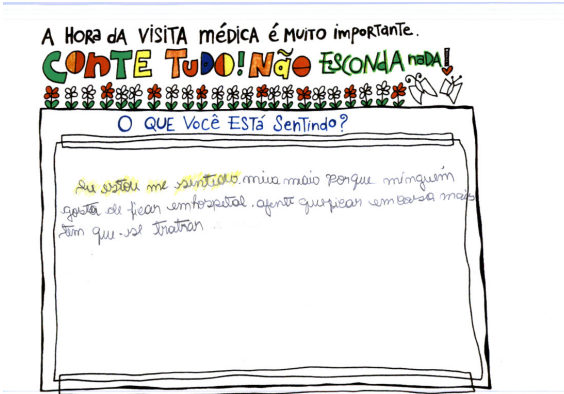 A HORA DA VISITA MÉDICA É MUITO IMPORTANTE.
CONTE TUDO! NÃO ESCONDA NADA!
O QUE VOCÊ ESTÁ SENTINDO?
Eu estou me sentido meio porque minguém
gosta de ficar emhospital. agente quer ficar em casa mais
tem que se tratrar